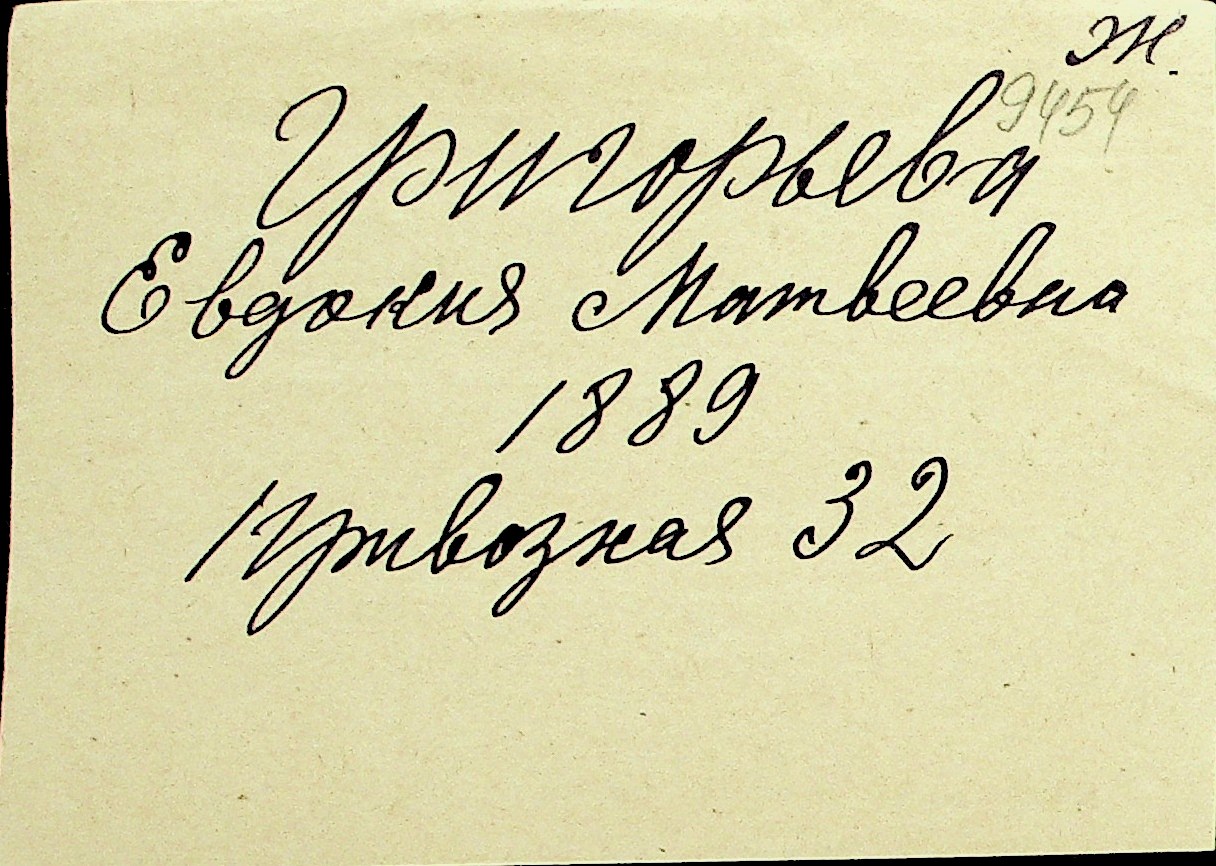 ж.
9454
Григорьева
Евдокия Матвеевна
1889
Привозная 32